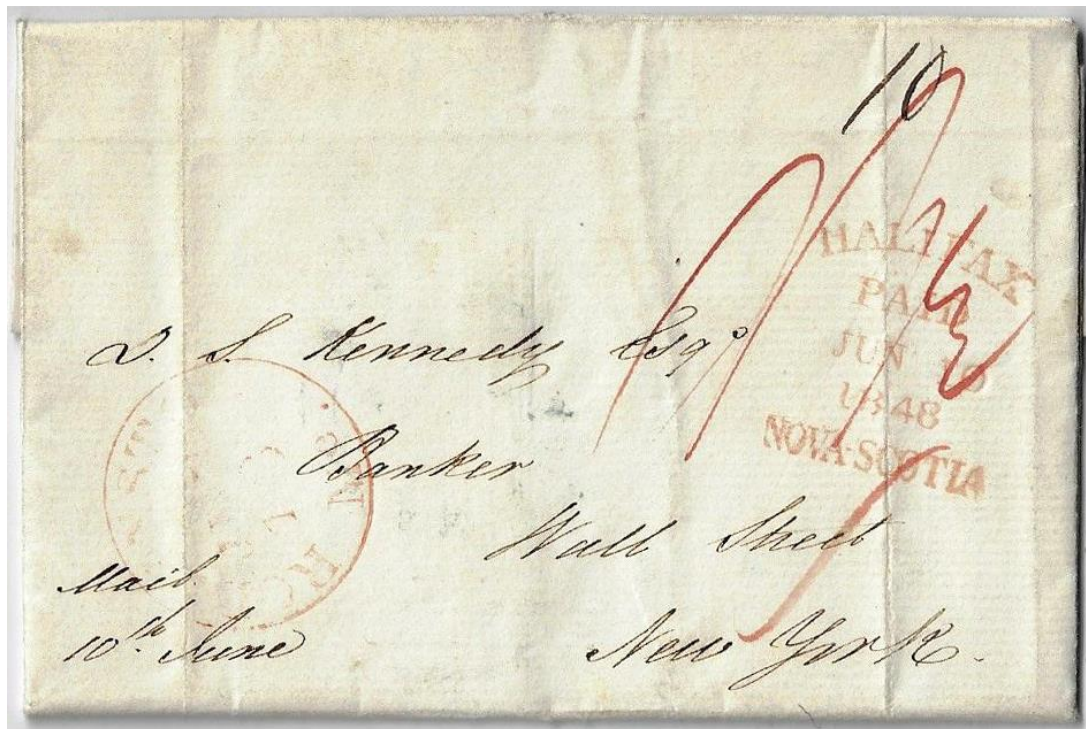 10
HALIFAX
PAID
JUN 10
1848
NOVA-SCOTIA
D. S. Kennedy Esqr
Banker
Wall Street
New York.
Mail
10th June